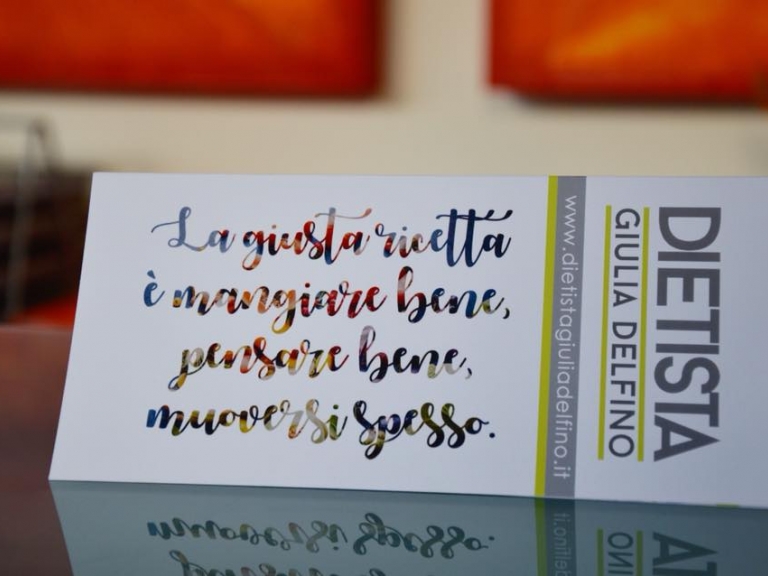 La giusta ricetta
è mangiare bene,
pensare bene,
muoversi spesso.
www.dietistagiuliadelfino.it
DIETISTA
GIULIA DELFINO